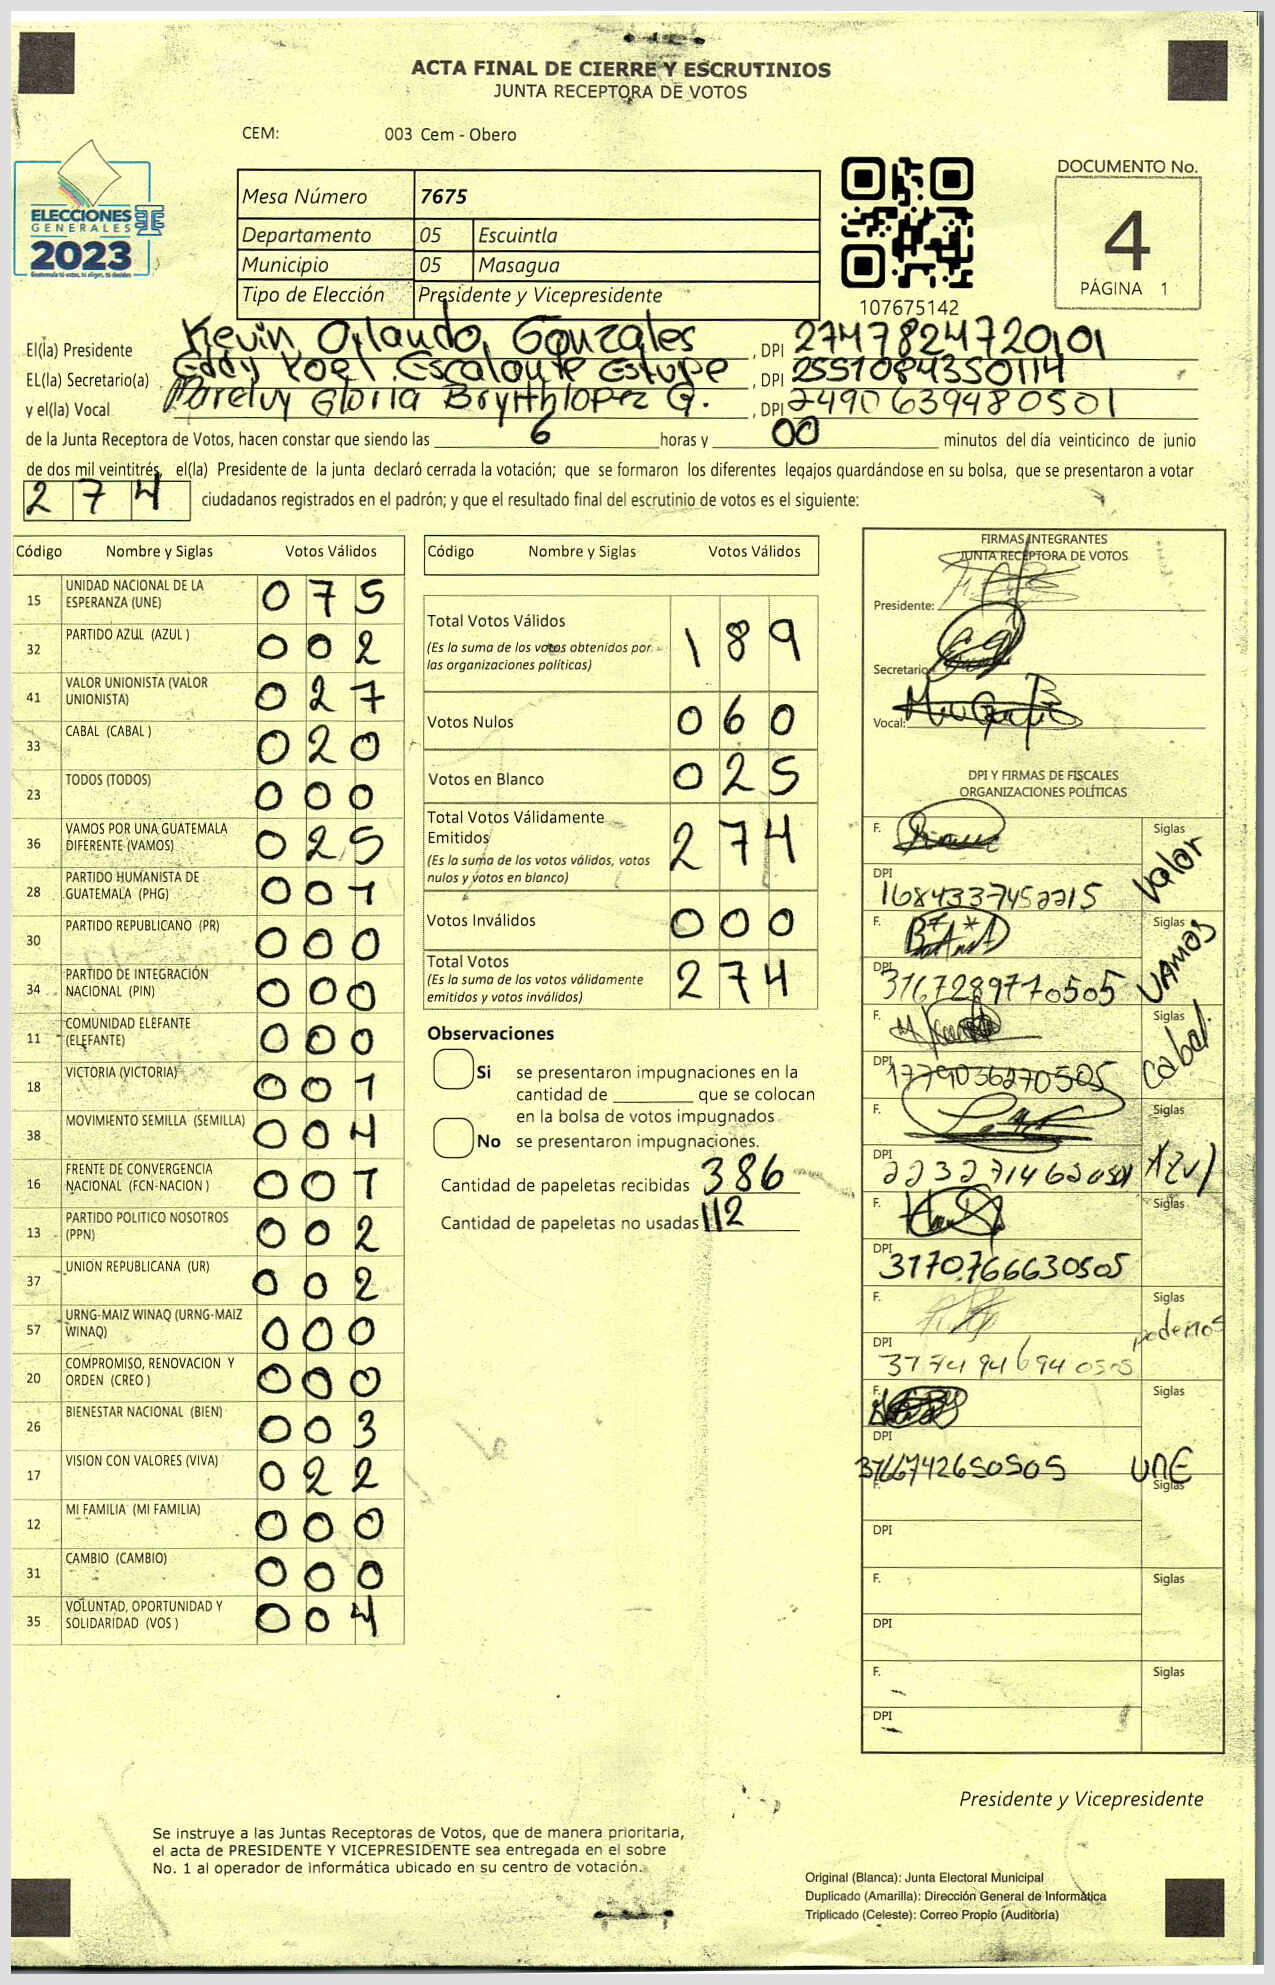 ACTA FINAL DE CIERRE Y ESCRUTINIOS
JUNTA RECEPTORA DE VOTOS
CEM: 003 Cem - Obero
ELECCIONES
GENERALES
2023
Guatemala tú votas, tú eliges, tú decides
Mesa Número 7675
Departamento 05 Escuintla
Municipio 05 Masagua
Tipo de Elección Presidente y Vicepresidente
107675142
DOCUMENTO No.
4
PÁGINA 1
El(la) Presidente Kevin Orlando Gonzales , DPI 2747824720101
EL(la) Secretario(a) Eddy Yoel Escalante Estupe , DPI 2551084350114
y el(la) Vocal Gloria Lopez G. , DPI 2490639480501
de la Junta Receptora de Votos, hacen constar que siendo las 6 horas y 00 minutos del día veinticinco de junio
de dos mil veintitrés, el(la) Presidente de la junta declaró cerrada la votación; que se formaron los diferentes legajos guardándose en su bolsa, que se presentaron a votar
274 ciudadanos registrados en el padrón; y que el resultado final del escrutinio de votos es el siguiente:
Código Nombre y Siglas Votos Válidos
15 UNIDAD NACIONAL DE LA ESPERANZA (UNE) 075
32 PARTIDO AZUL (AZUL ) 002
41 VALOR UNIONISTA (VALOR UNIONISTA) 027
33 CABAL (CABAL ) 020
23 TODOS (TODOS) 000
36 VAMOS POR UNA GUATEMALA DIFERENTE (VAMOS) 025
28 PARTIDO HUMANISTA DE GUATEMALA (PHG) 001
30 PARTIDO REPUBLICANO (PR) 000
34 PARTIDO DE INTEGRACIÓN NACIONAL (PIN) 000
11 COMUNIDAD ELEFANTE (ELEFANTE) 000
18 VICTORIA (VICTORIA) 001
38 MOVIMIENTO SEMILLA (SEMILLA) 004
16 FRENTE DE CONVERGENCIA NACIONAL (FCN-NACION ) 001
13 PARTIDO POLITICO NOSOTROS (PPN) 002
37 UNION REPUBLICANA (UR) 002
57 URNG-MAIZ WINAQ (URNG-MAIZ WINAQ) 000
20 COMPROMISO, RENOVACION Y ORDEN (CREO ) 000
26 BIENESTAR NACIONAL (BIEN) 003
17 VISION CON VALORES (VIVA) 022
12 MI FAMILIA (MI FAMILIA) 000
31 CAMBIO (CAMBIO) 000
35 VOLUNTAD, OPORTUNIDAD Y SOLIDARIDAD (VOS ) 004
Código Nombre y Siglas Votos Válidos
Total Votos Válidos 189
(Es la suma de los votos obtenidos por las organizaciones políticas)
Votos Nulos 060
Votos en Blanco 025
Total Votos Válidamente Emitidos 274
(Es la suma de los votos válidos, votos nulos y votos en blanco)
Votos Inválidos 000
Total Votos 274
(Es la suma de los votos válidamente emitidos y votos inválidos)
Observaciones
Si se presentaron impugnaciones en la
cantidad de ________ que se colocan
en la bolsa de votos impugnados
No se presentaron impugnaciones.
Cantidad de papeletas recibidas 386
Cantidad de papeletas no usadas 112
FIRMAS INTEGRANTES
JUNTA RECEPTORA DE VOTOS
Presidente:
Secretario:
Vocal:
DPI Y FIRMAS DE FISCALES
ORGANIZACIONES POLÍTICAS
F. Siglas Valor
DPI 1684337452215
F. Siglas VAMOS
DPI 3167289770505
F. Siglas Cabal.
DPI 1779036270505
F. Siglas Azul
DPI 2232714620501
F. Siglas
DPI 3170766630505
F. Siglas podemos
DPI 3174194694 0505
F. Siglas UNE
DPI 3166742650505
F. Siglas
DPI
F. Siglas
DPI
F. Siglas
DPI
Presidente y Vicepresidente
Se instruye a las Juntas Receptoras de Votos, que de manera prioritaria,
el acta de PRESIDENTE Y VICEPRESIDENTE sea entregada en el sobre
No. 1 al operador de informática ubicado en su centro de votación.
Original (Blanca): Junta Electoral Municipal
Duplicado (Amarilla): Dirección General de Informática
Triplicado (Celeste): Correo Propio (Auditoría)